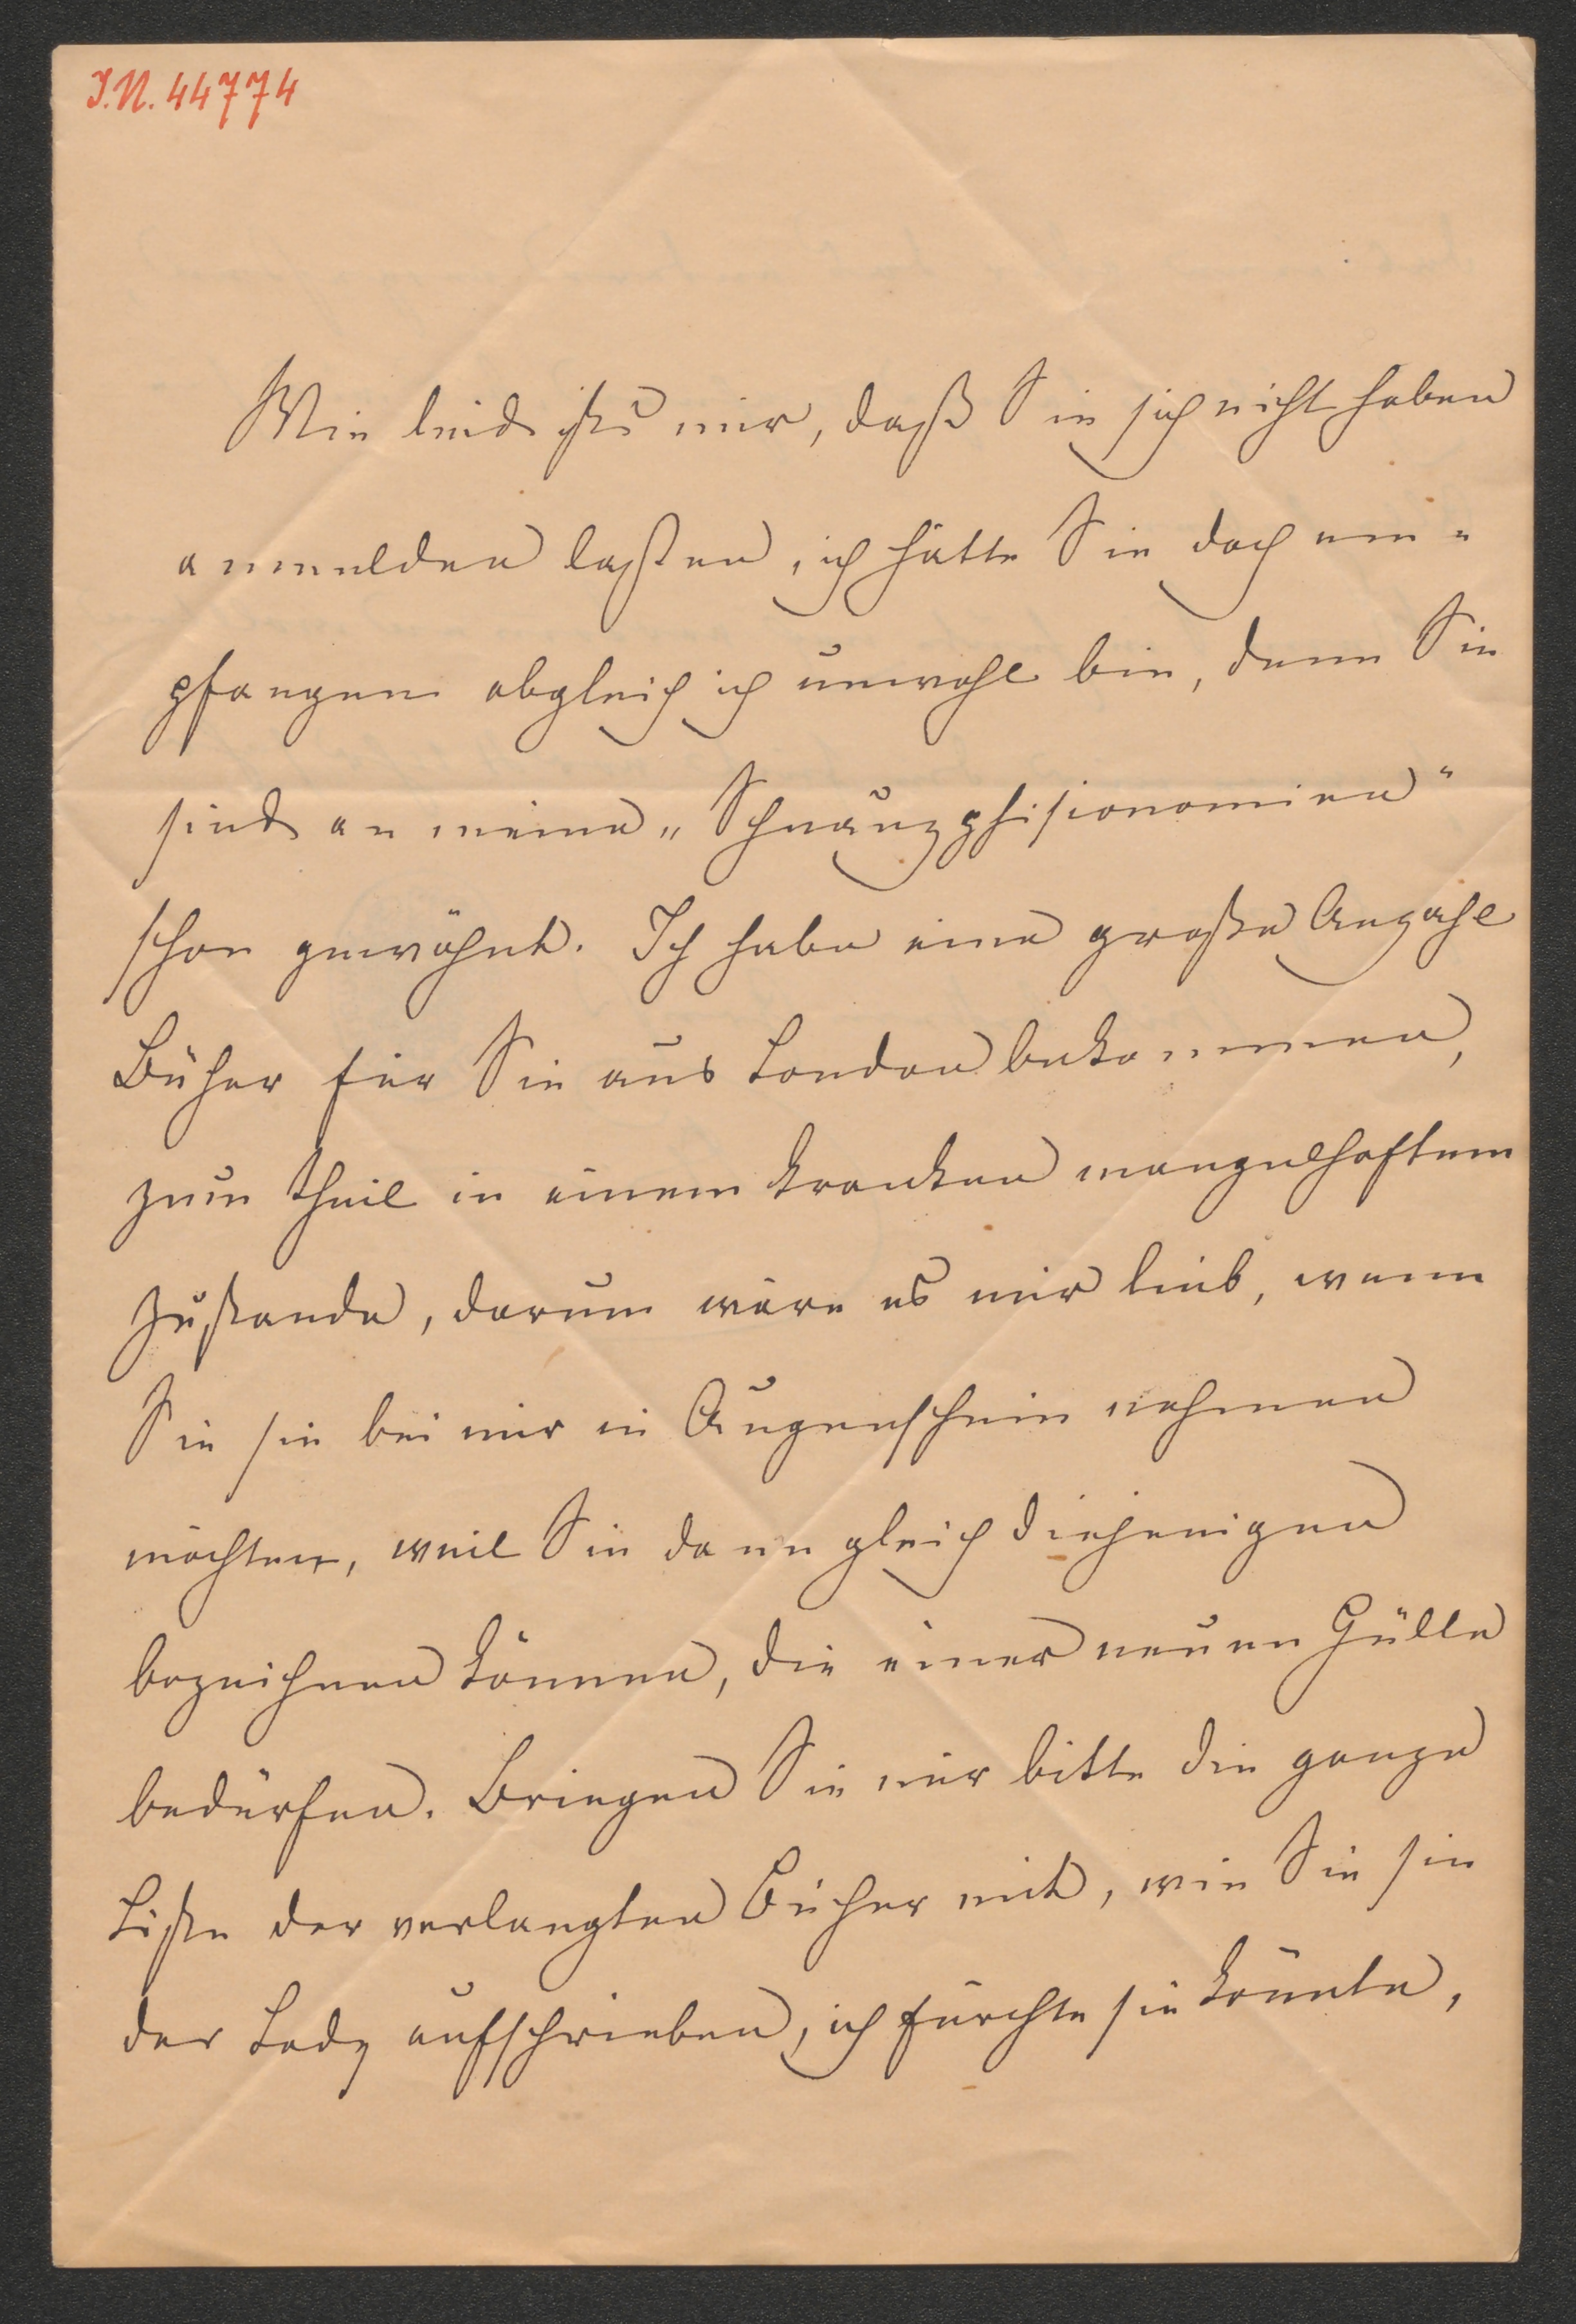 I.N. 44774
Wie leid ists mir, daß Sie sich nicht haben
anmelden laßen, ich hätte Sie doch em„
pfangen obgleich ich unwohl bin, denn Sie
sind an meine „Schnauzphisionomien“
schon gewöhnt. Ich habe eine große Anzahl
Bücher für Sie aus London bekommen,
zum theil in einem kranken mangelhaftem
Zustande, darum wäre es mir lieb, wenn
Sie sie bei mir in Augenschein nehmen
möchten, weil Sie dann gleich diejenigen
bezeichnen können, die einer neuen Hülle
bedürfen. Bringen Sie mir bitte die ganze
Liste der verlangten Bücher mit, wie Sie sie
der Lady aufschrieben, ich fürchte sie könnte,